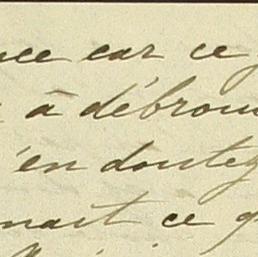 car ce
à débrou
en doutez
nait ce q